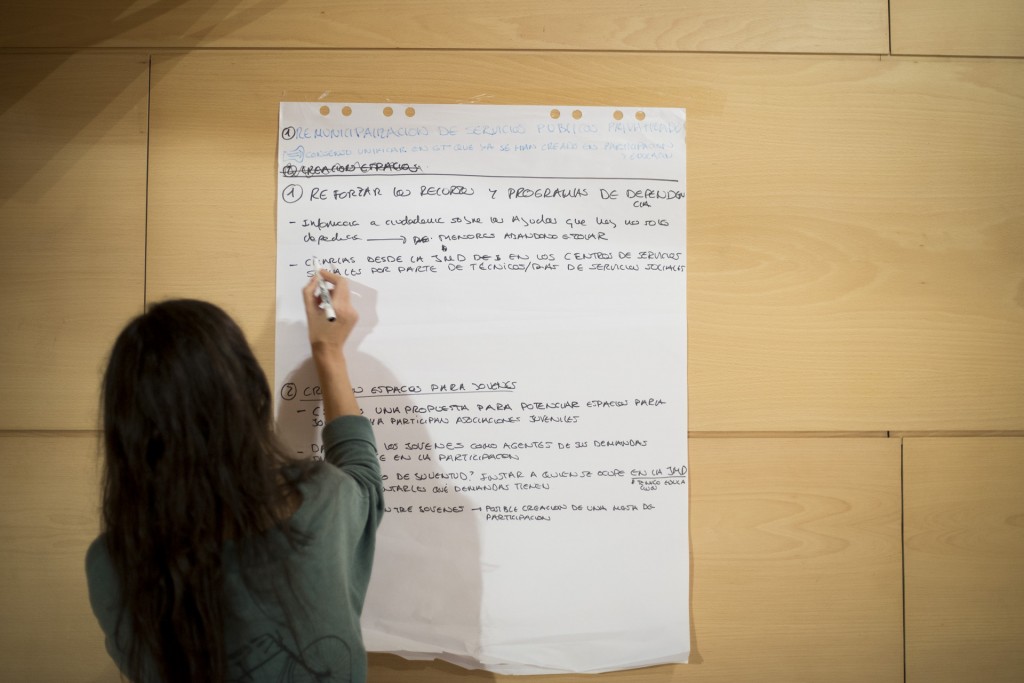 ① REMUNICIPALIZACION DE SERVICIOS PUBLICOS PRIVATIZADOS
CONSENSO EN QUE YA SE HAN CREADO EN PARTICIPACION Y
EDUCACION
② CREACION ESPACIOS
① REFORZAR LOS RECURSOS Y PROGRAMAS DE DEPENDEN
CIA
- a ciudadania sobre las Ayudas que hay no solo
dependencia → DE MENORES ABANDONO ESCOLAR
- DESDE LA JMD EN LOS CENTROS DE SERVICIOS
POR PARTE DE TÉCNICOS/ DE SERVICIOS SOCIALES
② ESPACIOS PARA JOVENES
- UNA PROPUESTA PARA POTENCIAR ESPACIOS PARA
PARTICIPAN ASOCIACIONES JUVENILES
- LOS JOVENES COMO AGENTES DE SUS DEMANDAS
EN LA PARTICIPACION
DE JUVENTUD? INSTAR A QUIEN SE OCUPE EN LA JMD
QUE DEMANDAS TIENEN
JOVENES → POSIBLE CREACION DE UNA MESA DE
PARTICIPACION